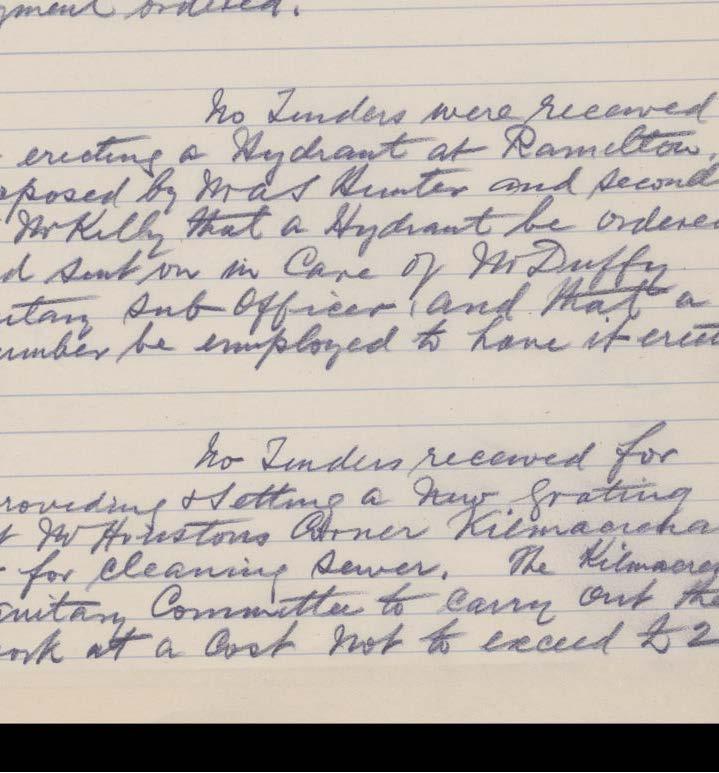 yment ordered.
No Tenders were received
erecting a Hydrant at Ramelton.
oposed by Mr A S Hunter and second
Mr Kelly that a Hydrant be ordered
d sent on in Care of Mr Duffy
itary Sub Officer, and that a
umber be employed to have it erect
No Tenders received for
roviding & Setting a New Grating
t Mr Houstons Corner Kilmacrena
for cleaning sewer. The Kilmacre
anitary Committee to carry out the
ork at a Cost Not to exceed £2